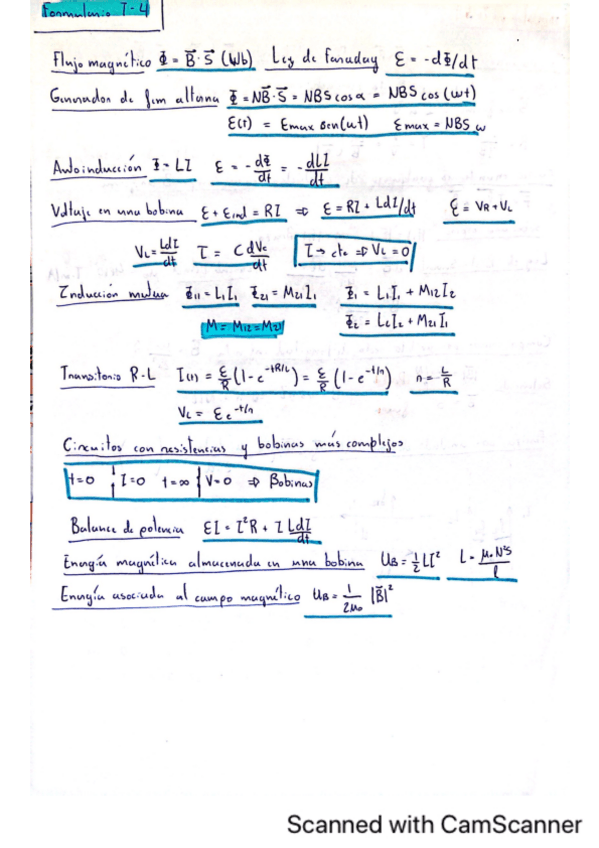 Formulario T-4
Flujo magnético Φ = B⃗·S⃗ (Wb) Ley de Faraday ε = -dΦ/dt
Generador de fem alterna Φ = NB⃗·S⃗ = NBS cos α = NBS cos (ωt)
ε(t) = εmax sen(ωt) εmax = NBS ω
Autoinducción Φ = LI ε = -dΦ/dt = -dLI/dt
Voltaje en una bobina ε + εind = RI ⇒ ε = RI + LdI/dt ε = VR + VL
VL = LdI/dt I = C dVc/dt I → cte ⇒ VL = 0
Inducción mutua Φ11 = L1I1 Φ21 = M21I1 Φ1 = L1I1 + M12I2
M = M12 = M21 Φ2 = L2I2 + M21I1
Transitorio R-L I(t) = ε/R (1 - e^-tR/L) = ε/R (1 - e^-t/η) η = L/R
VL = ε e^-t/η
Circuitos con resistencias y bobinas más complejos
t=0 { I=0 t=∞ { V=0 ⇒ Bobinas
Balance de potencia εI = I²R + I LdI/dt
Energía magnética almacenada en una bobina UB = 1/2 LI² L = μ0 N²S/l
Energía asociada al campo magnético UB = 1/2μ0 |B⃗|²
Scanned with CamScanner